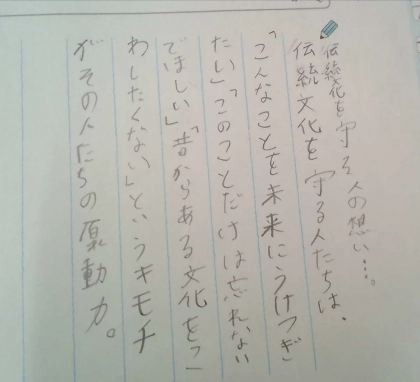 伝統文化を守る人の想い…。
伝統文化を守る人たちは、
「こんなことを未来にうけつぎ
たい」「このことだけは忘れない
でほしい」「昔からある文化をこ
わしたくない」というキモチ
がその人たちの原動力。